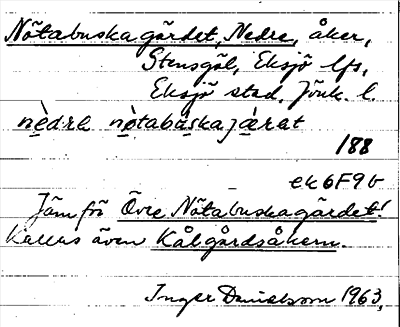 Nötabuskagärdet, Nedre, åker,
Stensgöl, Eksjö lfs,
Eksjö stad, Jönk. l.
nèdre nòtabùskajæ̀rət
188
ek6F9b
Jämför Övre Nötabuskagärdet!
Kallas även Kålgårdsåkern.
Inger Danielsson 1963